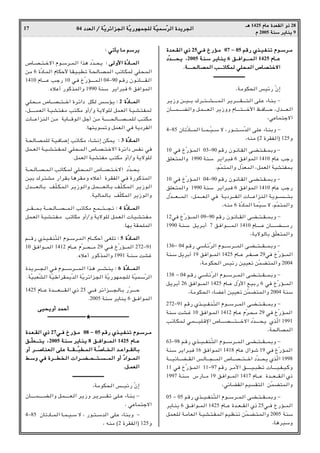 28 ذو القعدة عام 1425 هـ
9 يناير سنة 2005 م
الجريدة الرسمية للجمهورية الجزائرية / العدد 04
17
مرسوم تنفيذي رقم 05 – 07 مؤرخ في 25 ذي القعدة
عام 1425 الموافق 6 يناير سنة 2005، يحدد
الاختصاص الإقليمي لمكاتب المصالحة.
إن رئيس الحكومة،
– بناء على تقرير المشترك بين وزير العمل والضمان الاجتماعي،
– وبناء على الدستور، لا سيما المادتان 85–4
و125 (الفقرة 2) منه،
– وبمقتضى القانون رقم 90–03 المؤرخ في 10
رجب عام 1410 الموافق 6 فبراير سنة 1990 والمتعلق
بمفتشية العمل، المعدل والمتمم،
– وبمقتضى القانون رقم 90–04 المؤرخ في 10
رجب عام 1410 الموافق 6 فبراير سنة 1990 والمتعلق
بتسوية النزاعات الفردية في العمل، المعدل
والمتمم، لا سيما المادة 6 منه،
– وبمقتضى القانون رقم 90–09 المؤرخ في 12
رمضان عام 1410 الموافق 7 أبريل سنة 1990
والمتعلق بالولاية،
– وبمقتضى المرسوم الرئاسي رقم 04 –136
المؤرخ في 29 صفر عام 1425 الموافق 19 أبريل سنة
2004 والمتضمن تعيين رئيس الحكومة،
– وبمقتضى المرسوم الرئاسي رقم 04 – 138
المؤرخ في 6 ربيع الأول عام 1425 الموافق 26 أبريل
سنة 2004 والمتضمن تعيين أعضاء الحكومة،
– وبمقتضى المرسوم التنفيذي رقم 91–272
المؤرخ في 29 محرم عام 1412 الموافق 10 غشت سنة
1991 الذي يحدد الاختصاص الإقليمي لمكاتب
المصالحة،
– وبمقتضى المرسوم التنفيذي رقم 98–63
المؤرخ في 19 شوال عام 1418 الموافق 16 فبراير سنة
1998 الذي يحدد اختصاص المجالس القضائية
وكيفيات تطبيق الأمر رقم 97–11 المؤرخ في 11
ذي القعدة عام 1417 الموافق 19 مارس سنة 1997
والمتضمن التقسيم القضائي،
– وبمقتضى المرسوم التنفيذي رقم 05 – 05
المؤرخ في 25 ذي القعدة عام 1425 الموافق 6 يناير
سنة 2005 والمتضمن تنظيم المفتشية العامة للعمل
وسيرها،
يرسم ما يأتي :
المادة الأولى : يحدد هذا المرسوم الاختصاص
الإقليمي لمكاتب المصالحة تطبيقا لأحكام المادة 6 من
القانون رقم 90–04 المؤرخ في 10 رجب عام 1410
الموافق 6 فبراير سنة 1990 والمذكور أعلاه.
المادة 2 : يؤسس لكل دائرة اختصاص إقليمي
لمفتشية العمل للولاية و/أو مكتب مفتشية العمل،
مكتب للمصالحة من أجل الوقاية من النزاعات
الفردية في العمل وتسويتها.
المادة 3 : يمكن إنشاء مكاتب إضافية للمصالحة
في نفس دائرة الاختصاص الإقليمي لمفتشية العمل
للولاية و/أو مكتب مفتشية العمل.
يحدد الاختصاص الإقليمي لمكاتب المصالحة
المذكورة في الفقرة أعلاه بقرار مشترك بين
الوزير المكلف بالعمل والوزير المكلف بالعدل
والوزير المكلف بالمالية.
المادة 4 : تجتمع مكاتب المصالحة بمقر
مفتشيات العمل للولاية و/أو مكاتب مفتشية العمل
الملحقة بها.
المادة 5 : تلغى أحكام المرسوم التنفيذي رقم
91–272 المؤرخ في 29 محرم عام 1412 الموافق 10
غشت سنة 1991 والمذكور أعلاه.
المادة 6 : ينشر هذا المرسوم في الجريدة
الرسمية للجمهورية الجزائرية الديمقراطية الشعبية.
حرر بالجزائر في 25 ذي القعدة عام 1425
الموافق 6 يناير سنة 2005.
أحمد أويحيى
مرسوم تنفيذي رقم 05 – 08 مؤرخ في 27 ذي القعدة
عام 1425 الموافق 8 يناير سنة 2005، يتعلق
بالقواعد الخاصة المطبقة على العناصر أو
المواد أو المستحضرات الخطرة في وسط
العمل.
إن رئيس الحكومة،
– بناء على تقرير وزير العمل والضمان
الاجتماعي،
– وبناء على الدستور، لا سيما المادتان 85–4
و125 (الفقرة 2) منه ؛